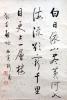 白日依山盡黄河入
海流欲窮千里
目更上一層樓